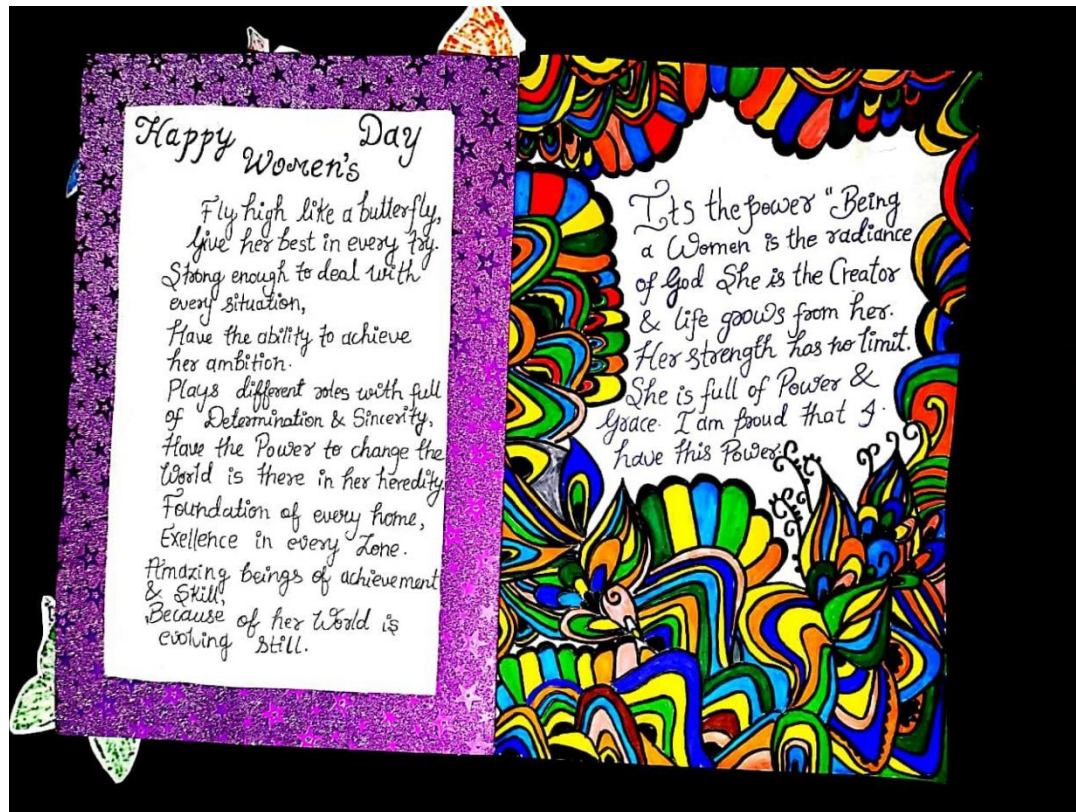 Happy Women's Day
Fly high like a butterfly,
Give her best in every try.
Strong enough to deal with
every situation,
Have the ability to achieve
her ambition.
Plays different roles with full
of Determination & Sincerity,
Have the Power to change the
World is there in her heredity.
Foundation of every home,
Exellence in every Zone.
Amazing beings of achievement
& Skill,
Because of her World is
evolving still.
Its the power "Being
a Women is the radiance
of God She is the Creator
& life grows from her.
Her strength has no limit.
She is full of Power &
Grace. I am proud that I
have this Power.